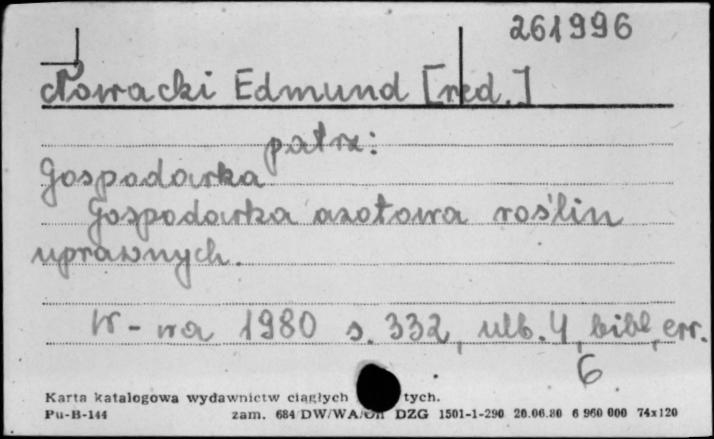 261996
Nowacki Edmund [red.]
patrz:
Gospodarka
Gospodarka azotowa roślin
uprawnych.
W-wa 1980 s. 332, ulb. 4, bibl, err.
6
Karta katalogowa wydawnictw ciągłych tych.
Pu-B-144 zam. 684/DW/WA/Un DZG 1501-1-290 20.06.80 6 960 000 74x120